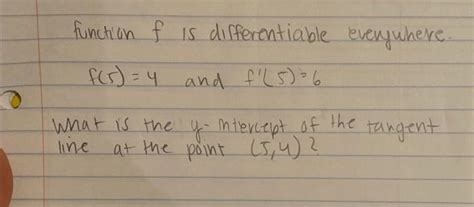 function f is differentiable everywhere.
f(5) = 4 and f'(5) = 6
What is the y-intercept of the tangent
line at the point (5,4)?